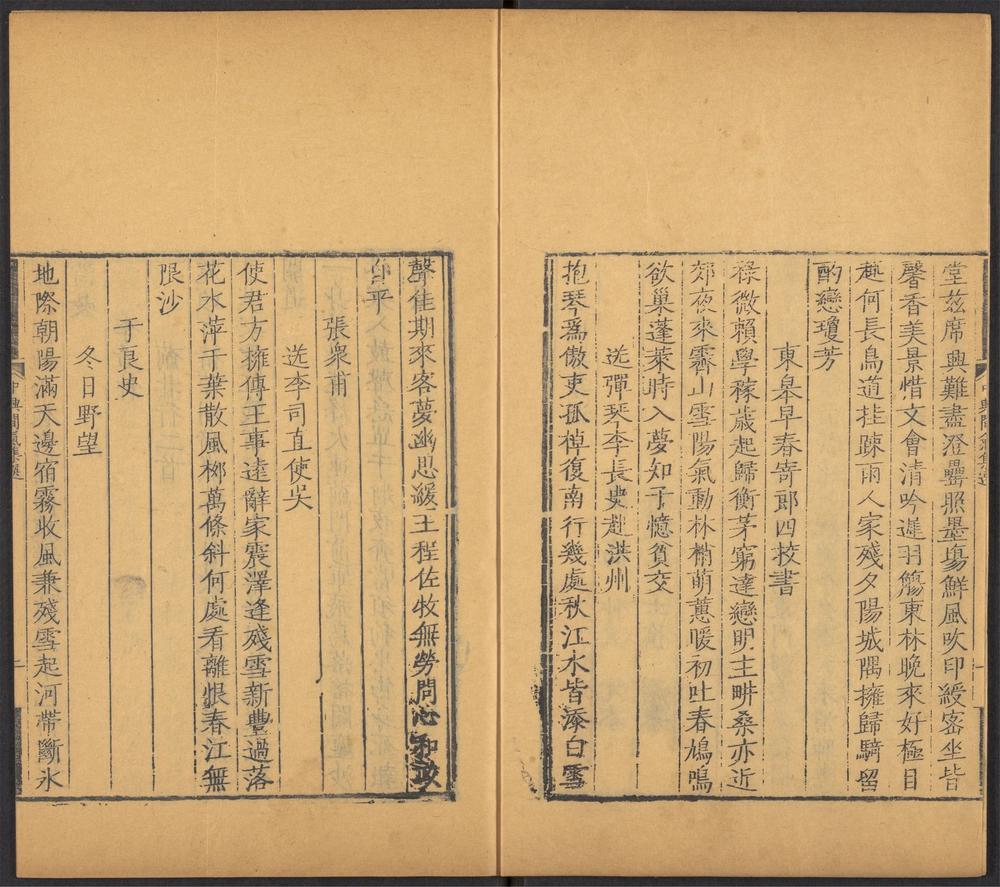 堂茲席興難盡澄罍照墨塲鮮風吹印綬密坐皆
馨香美景惜文會清吟遲羽觴東林晚來好極目
趣何長鳥道挂疎雨人家殘夕陽城隅擁歸騎留
酌戀瓊芳
東皋早春寄郎四挍書
祿微賴學稼歲起歸衡茅窮達戀明主畊桑亦近
郊夜來霽山雪陽氣動林梢萌蕙暖初吐春鳩鳴
欲巢蓬萊時入夢知子憶貧交
送彈琴李長史赴洪州
抱琴爲傲吏孤棹復南行幾處秋江水皆添白雪
聲佳期來客夢幽思緩王程佐牧無勞問心和政
自平
張衆甫
送李司直使吴
使君方擁傳王事遠辭家震澤逢殘雪新豐過落
花水萍千葉散風栁萬條斜何處看離恨春江無
限沙
于良史
冬日野望
地際朝陽滿天邊宿霧收風兼殘雪起河帶斷氷